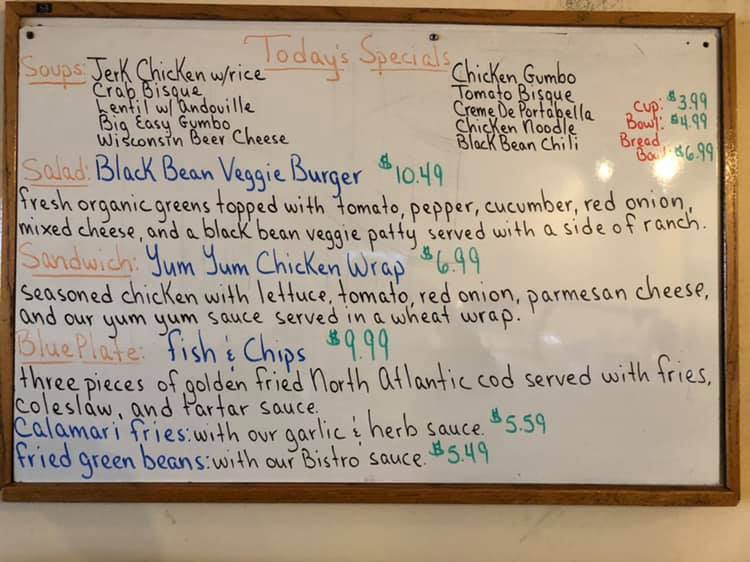 Today's Specials
Soups: Jerk Chicken w/rice
Crab Bisque
Lentil w/ Andouille
Big Easy Gumbo
Wisconsin Beer Cheese
Chicken Gumbo
Tomato Bisque
Creme De Portabella
Chicken Noodle
Black Bean Chili
Cup: $3.99
Bowl: $4.99
Bread
Bowl: $6.99
Salad: Black Bean Veggie Burger $10.49
fresh organic greens topped with tomato, pepper, cucumber, red onion,
mixed cheese, and a black bean veggie patty served with a side of ranch.
Sandwich: Yum Yum Chicken Wrap $6.99
seasoned chicken with lettuce, tomato, red onion, parmesan cheese,
and our yum yum sauce served in a wheat wrap.
Blue Plate: fish & Chips $9.99
three pieces of golden fried North Atlantic cod served with fries,
coleslaw, and tartar sauce.
Calamari fries: with our garlic & herb sauce. $5.59
fried green beans: with our Bistro sauce. $5.49